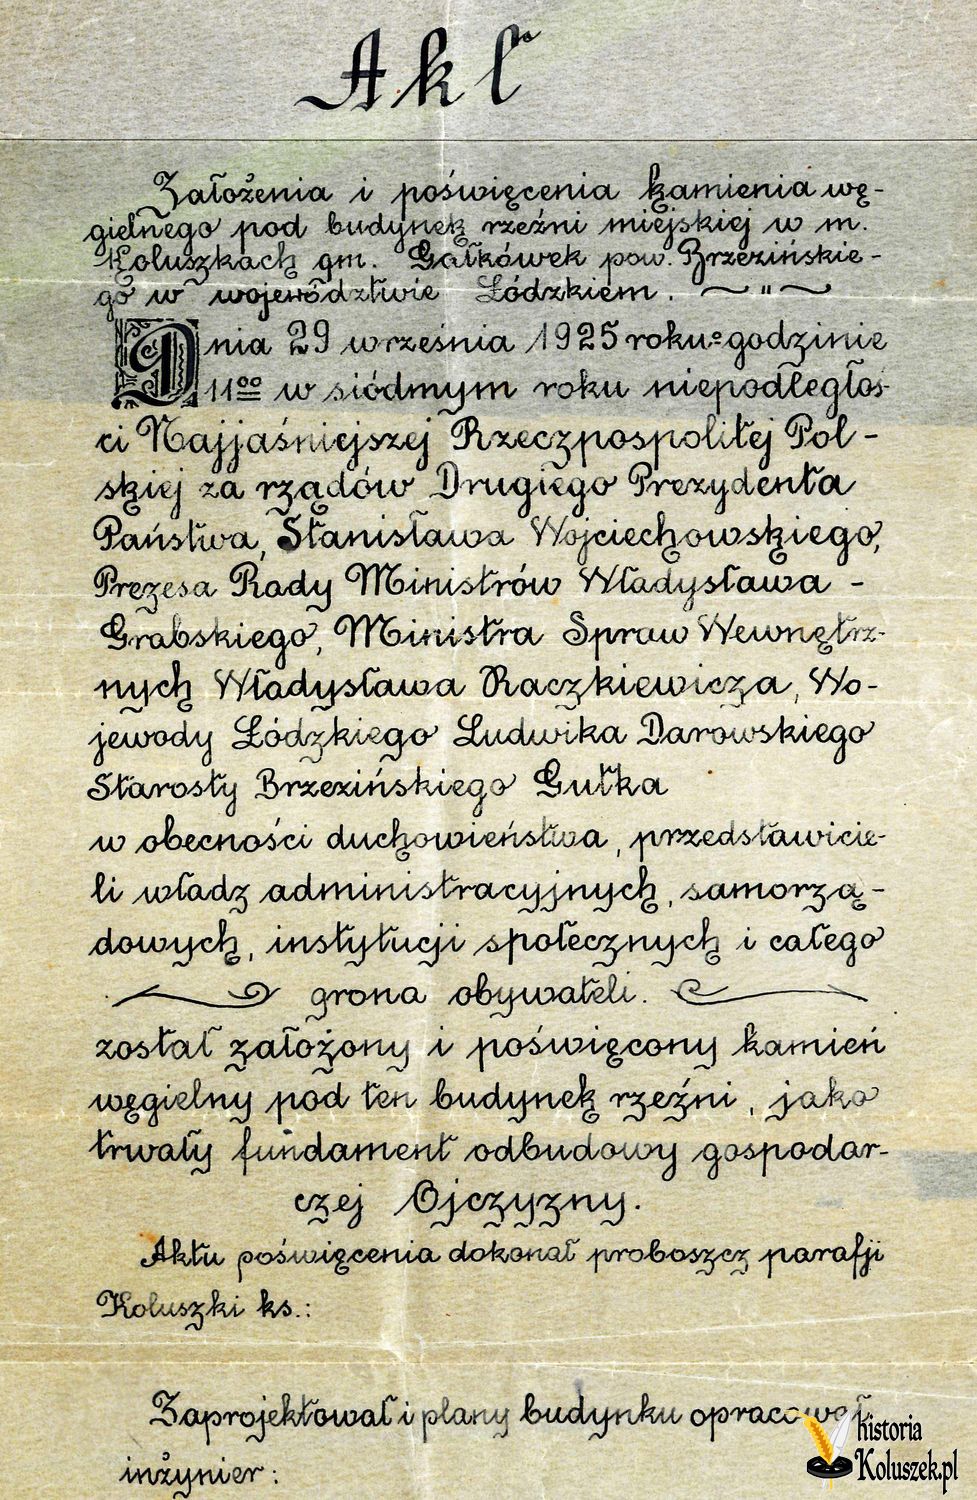 Akt
Założenia i poświęcenia kamienia wę-
gielnego pod budynek rzeźni miejskiej w m.
Koluszkach gm. Gałkówek pow. Brzezińskie-
go w województwie Łódzkiem. ~ " ~
Dnia 29 września 1925 roku o godzinie
11 00 w siódmym roku niepodległoś-
ci Najjaśniejszej Rzeczpospolitej Pol-
skiej za rządów Drugiego Prezydenta
Państwa, Stanisława Wojciechowskiego,
Prezesa Rady Ministrów Władysława -
Grabskiego, Ministra Spraw Wewnętrz-
nych Władysława Raczkiewicza, Wo-
jewody Łódzkiego Ludwika Darowskiego
Starosty Brzezińskiego Gutka
w obecności duchowieństwa, przedstawicie-
li władz administracyjnych, samorzą-
dowych, instytucji społecznych i całego
grona obywateli.
został założony i poświęcony kamień
węgielny pod ten budynek rzeźni, jako
trwały fundament odbudowy gospodar-
czej Ojczyzny.
Aktu poświęcenia dokonał proboszcz parafji
Koluszki ks.:
Zaprojektował i plany budynku opracował
inżynier:
historia
Koluszek.pl